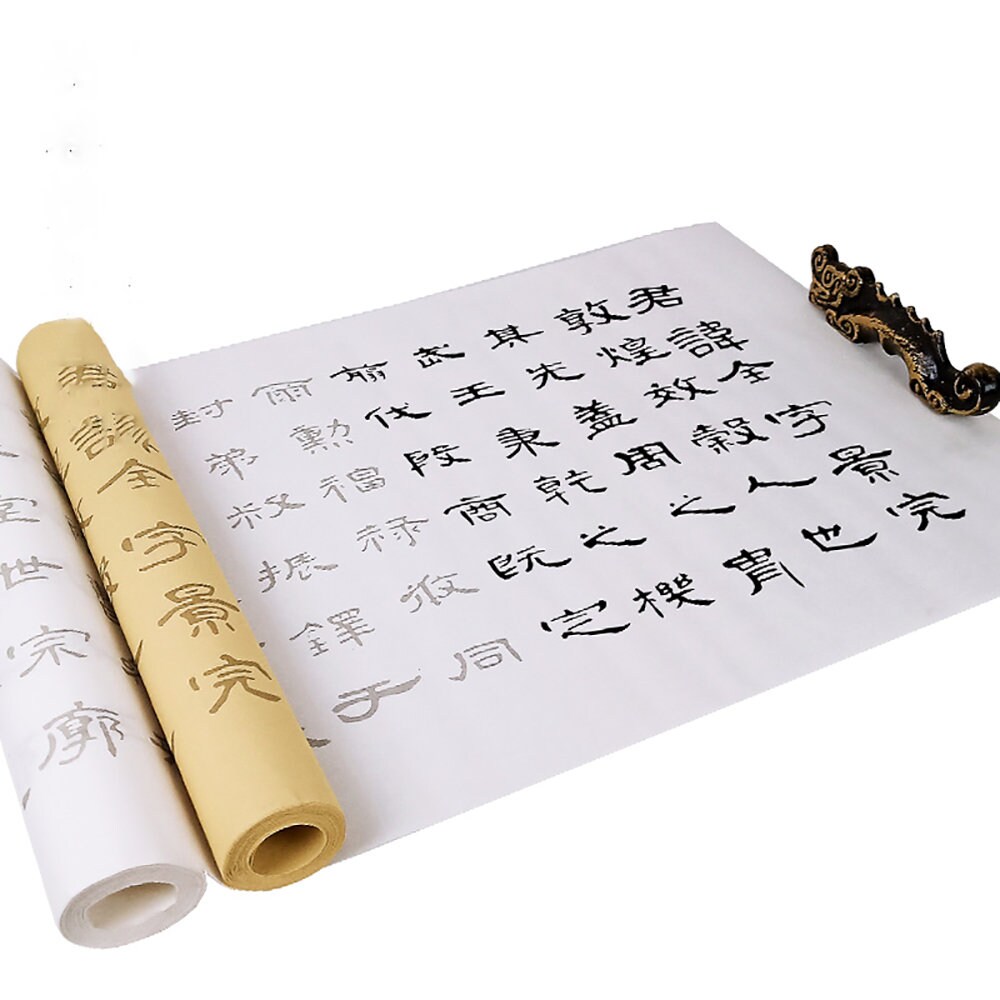 君諱全字景完
敦煌效穀人也
其先蓋周之冑
武王秉乾之機
翦伐殷商既定
爾勳福祿攸同
封弟叔振鐸于
君諱全字景完
室世宗廓